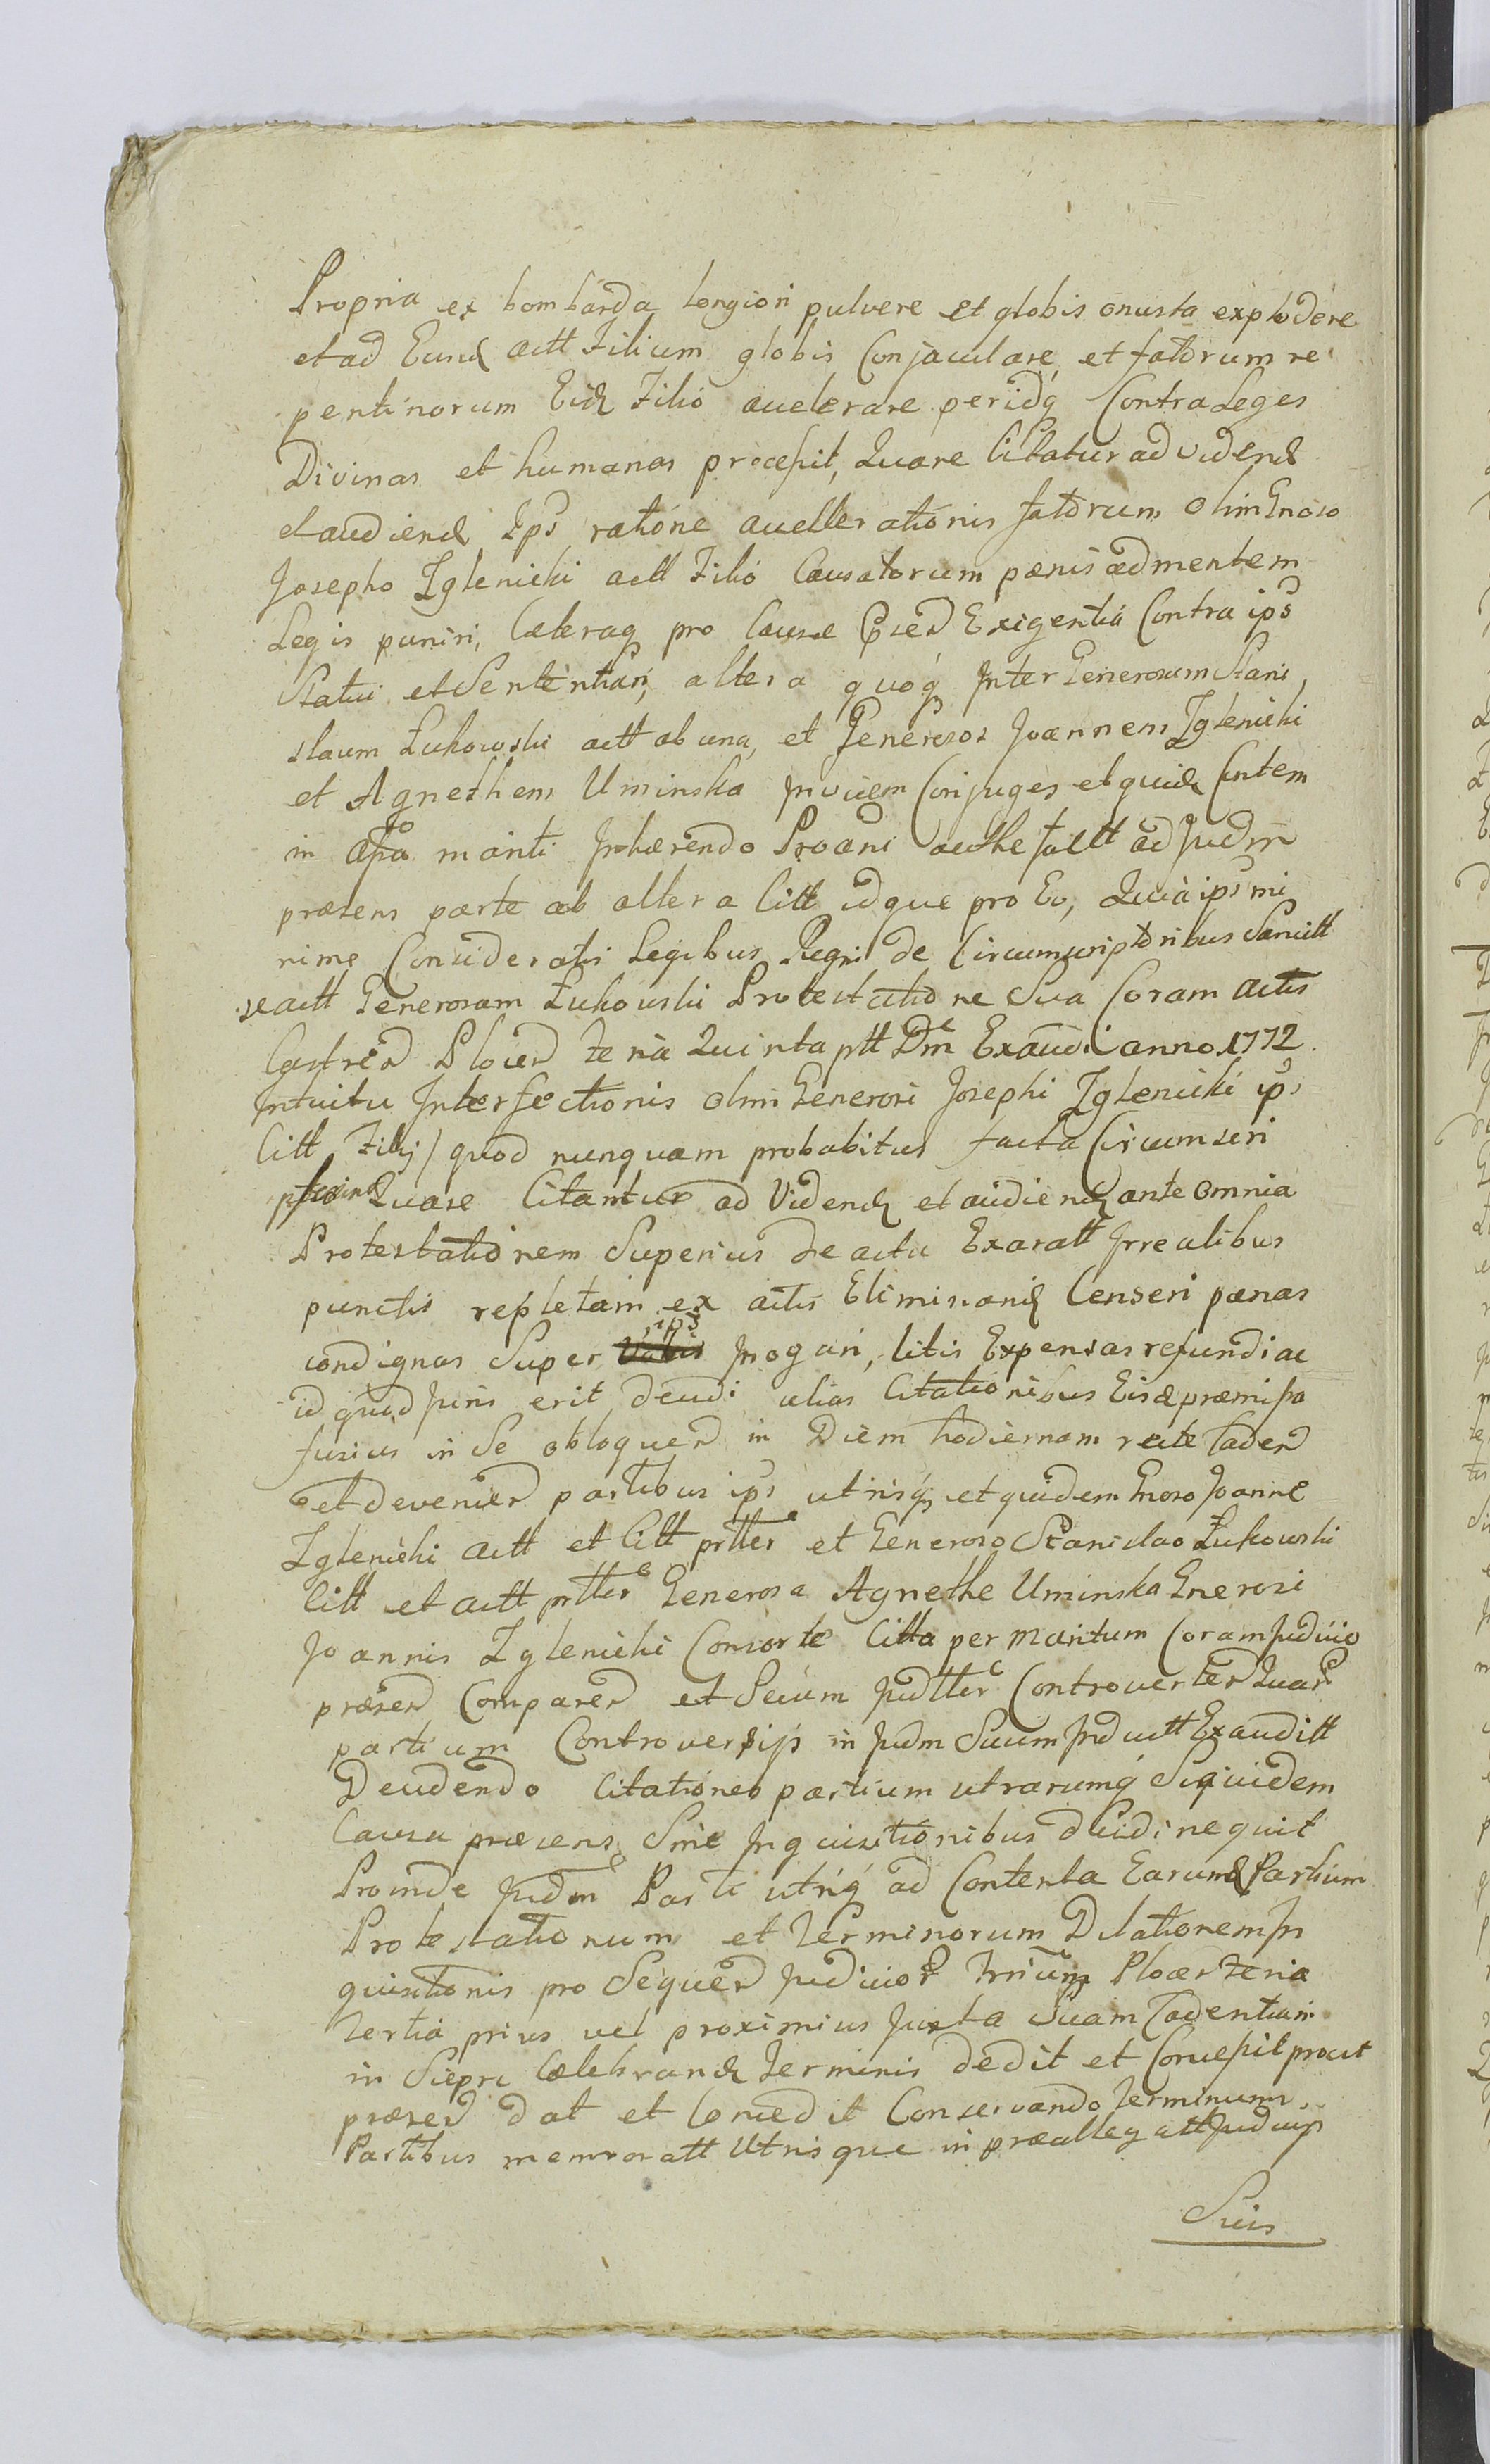 Propria ex bombarda longiori pulvere et globis onusta explodere
et ad Eund actt Filium globis Conjaculare, et fatorum re
pentinorum Eid Filio accelerare periodq Contra Leges
Divinas et humanas processit, Quare Citatur ad vidend
et audiend Ips ratione accellerationis fatorum olim Gnoso
Josepho Zglenicki actt Filio Causatorum pænis ad mentem
Legis puniri, Cæteraq pro Causæ Exigentia Contra ips
Statui et Sententiari, altera quoq Inter Generosum Stani
slaum Łukowski actt ab una, et Generosos Joannem Zglenicki
et Agnethem Uminska Invicem Conjuges et quid
in manti Inhærendo ad Judm
præsens parte ab altera Citt idque pro Eo, Quia ips mi
nime Consideratis Legibus Regni de Circumscriptoribus Sancitt
se actt Generosum Łukowski Protestatione Sua Coram actis
Castren Plocen feria Quinta ptt Dm Exaudi anno 1772
Intuitu Interfectionis olim Generosi Josephi Zglenicki ips
Citt Filij / quod nunquam probabitur facta Circumscri
pserint Quare Citantur ad Vidend et audiend ante omnia
Protestationem Superius de actu Exaratt Irrealibus
punctis repletam ex actis Eliminand Censeri pænas
condignas Super ips Irrogari, litis Expensas refundi ac
id quod juris erit decidi alias Citationibus Eis præmissa
fusius in Se obloquen in Diem hodiernam recte Caden
et devenien partibus ips utrisq et quidem Gnoso Joanne
Zglenicki actt et Citt prtter et Generoso Stanislao Łukowski
Citt et actt prtter Generosa Agnethe Uminska Gnerosi
Joannis Zglenicki Consorte Citta per Maritum Coram Judicio
præsen Comparen et Secum Judtter Controverten Quar
partium Controversijs in Judm Suum Inductt Exauditt
Decidendo Citationes partium utrarumq Siquidem
Causa præsens Sine Inquisitionibus decidi nequit
Proinde Judm Parti utriq ad Contenta Earumd Partium
Protestationum et Terminorum Dilationem In
quisitionis pro Sequen Judicior Feria
Tertia prius vel proximius Juxta Suam Cadentiam
in Sieprc Celebrand Terminis dedit et Concessit prout
præsen dat et Concedit Conservando Terminum
Partibus memoratt Utrisque in præallegatt Judicijs
Suis